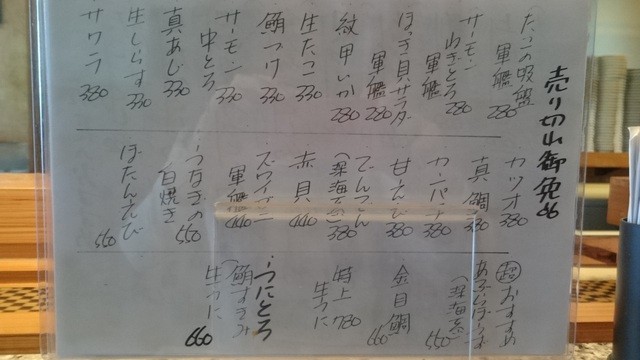 売り切れ御免
たこの吸盤
軍艦 280
サーモン
ねぎとろ
軍艦 280
ほっき貝サラダ
軍艦 280
紋甲いか 280
生たこ 330
鮪づけ 330
サーモン
中とろ 330
真あじ 330
生しらす 330
サワラ 330
カツオ 380
真鯛 380
カンパチ 380
甘えび 380
てんこつ
(深海魚) 380
赤貝 440
ズワイガニ
軍艦 440
うなぎの
白焼き 550
ぼたんえび 550
超おすすめ
あぶらぼうず
(深海魚) 550
金目鯛 660
特上
生うに 780
うにとろ
(鮪すきみ
生うに 660